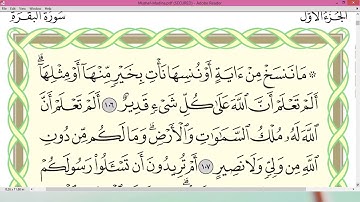 Mushaf Madina.pdf (SECURED) - Adobe Reader
سُورَةُ الْبَقَرَةِ الجُزْءُ الأَوَّلُ
۞ مَا نَنسَخْ مِنْ ءَايَةٍ أَوْ نُنسِهَا نَأْتِ بِخَيْرٍ مِّنْهَا أَوْ مِثْلِهَا ۗ
أَلَمْ تَعْلَمْ أَنَّ ٱللَّهَ عَلَىٰ كُلِّ شَىْءٍ قَدِيرٌ ١٠٦ أَلَمْ تَعْلَمْ أَنَّ
ٱللَّهَ لَهُۥ مُلْكُ ٱلسَّمَـٰوَٰتِ وَٱلْأَرْضِ ۗ وَمَا لَكُم مِّن دُونِ
ٱللَّهِ مِن وَلِىٍّ وَلَا نَصِيرٍ ١٠٧ أَمْ تُرِيدُونَ أَن تَسْـَٔلُوا۟ رَسُولَكُمْ